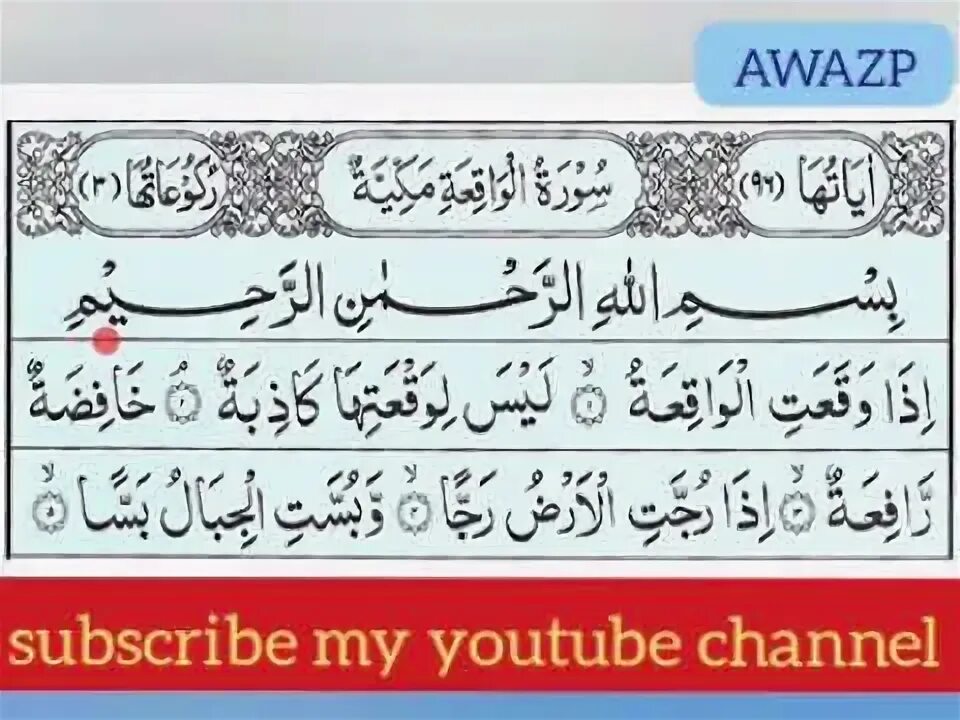 AWAZP
اٰيَاتُهَا (٩٦) سُوْرَةُ الْوَاقِعَةِ مَكِّيَّةٌ رُكُوْعَاتُهَا (٣)
بِسْمِ اللهِ الرَّحْمٰنِ الرَّحِيْمِ
اِذَا وَقَعَتِ الْوَاقِعَةُ ۙ‏ ١ لَيْسَ لِوَقْعَتِهَا كَاذِبَةٌ ۘ ٢ خَافِضَةٌ
رَّافِعَةٌ ۙ ٣ اِذَا رُجَّتِ الْاَرْضُ رَجًّا ۙ ٤ وَّبُسَّتِ الْجِبَالُ بَسًّا ۙ ٥
subscribe my youtube channel